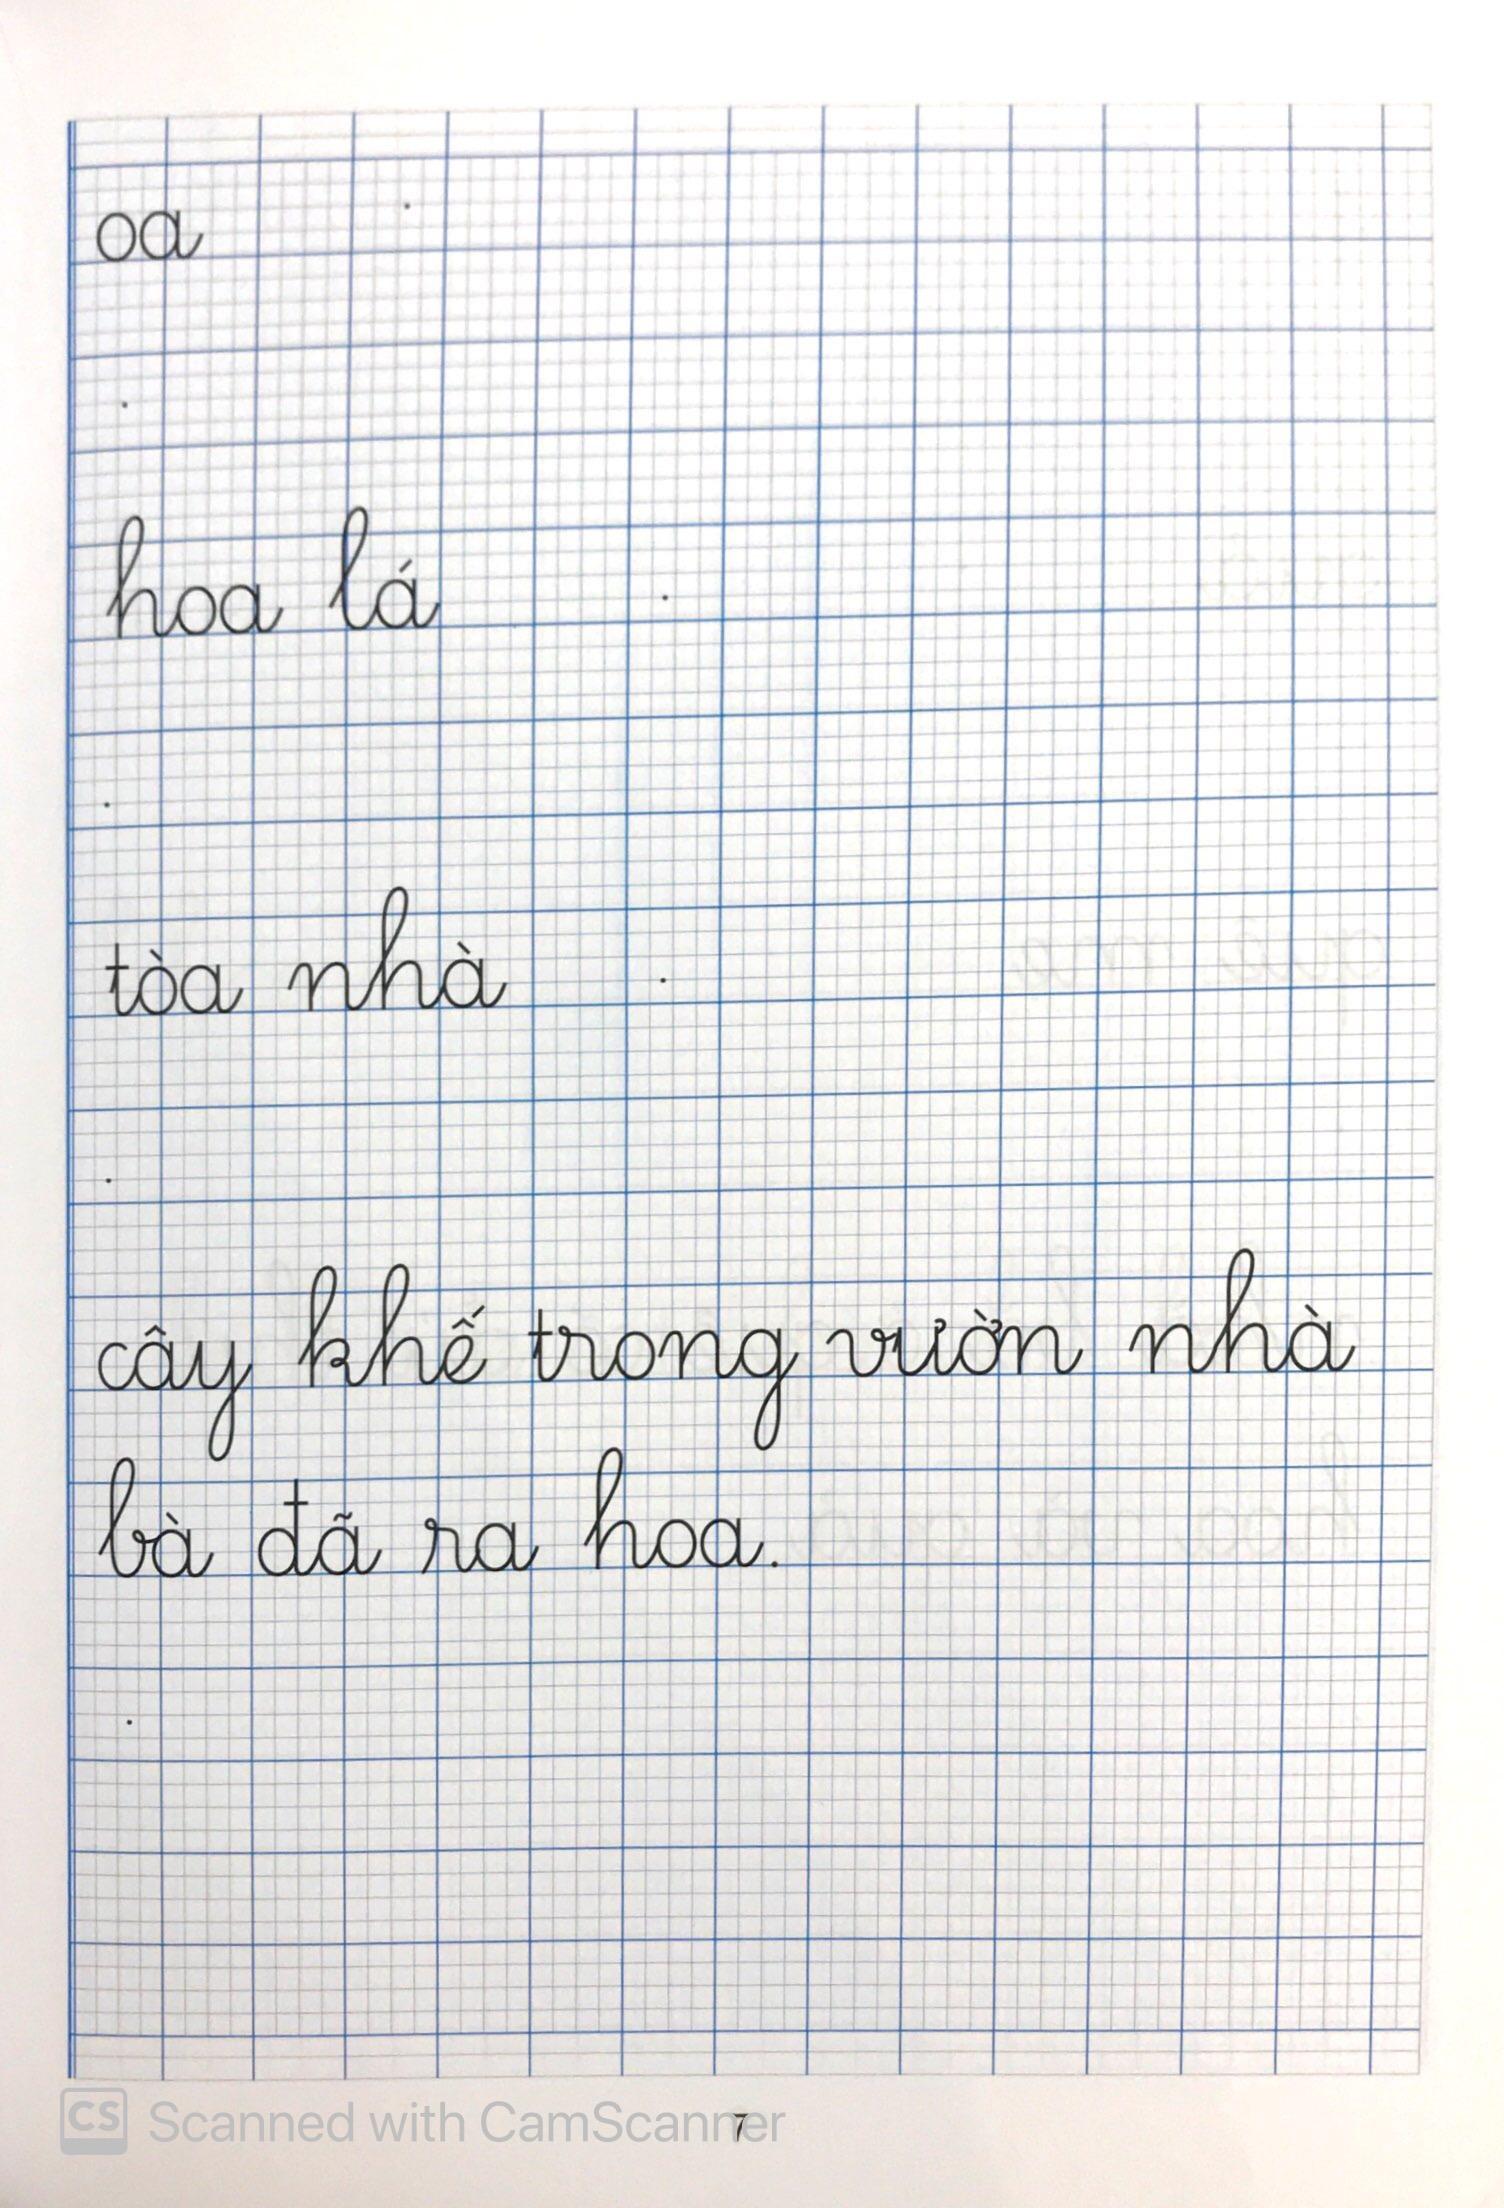 oa
hoa lá
tòa nhà
cây khế trong vườn nhà
bà đã ra hoa.
7
CS Scanned with CamScanner